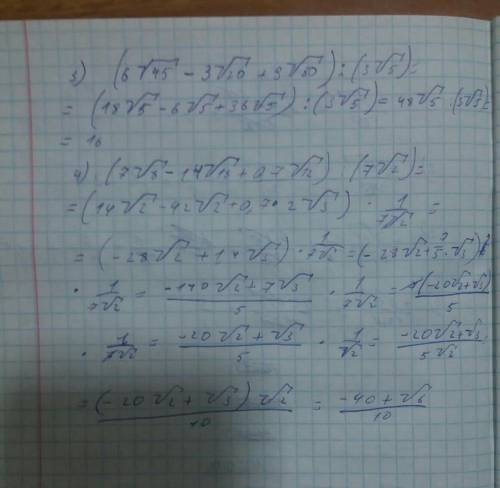 3) (6√45 - 3√20 + 9√80) : (3√5) =
= (18√5 - 6√5 + 36√5) : (3√5) = 48√5 : (3√5) =
= 16
4) (7√8 - 14√18 + 0,7√12) : (7√2) =
= (14√2 - 42√2 + 0,7 · 2√3) · 1/7√2 =
= (-28√2 + 1,4√3) · 1/7√2 = (-28√2 + 7/5 · √3)
· 1/7√2 = -140√2 + 7√3/5 · 1/7√2 = 7(-20√2 + √3)/5
· 1/7√2 = -20√2 + √3/5 · 1/√2 = -20√2 + √3/5√2
= (-20√2 + √3)√2/10 = -40 + √6/10